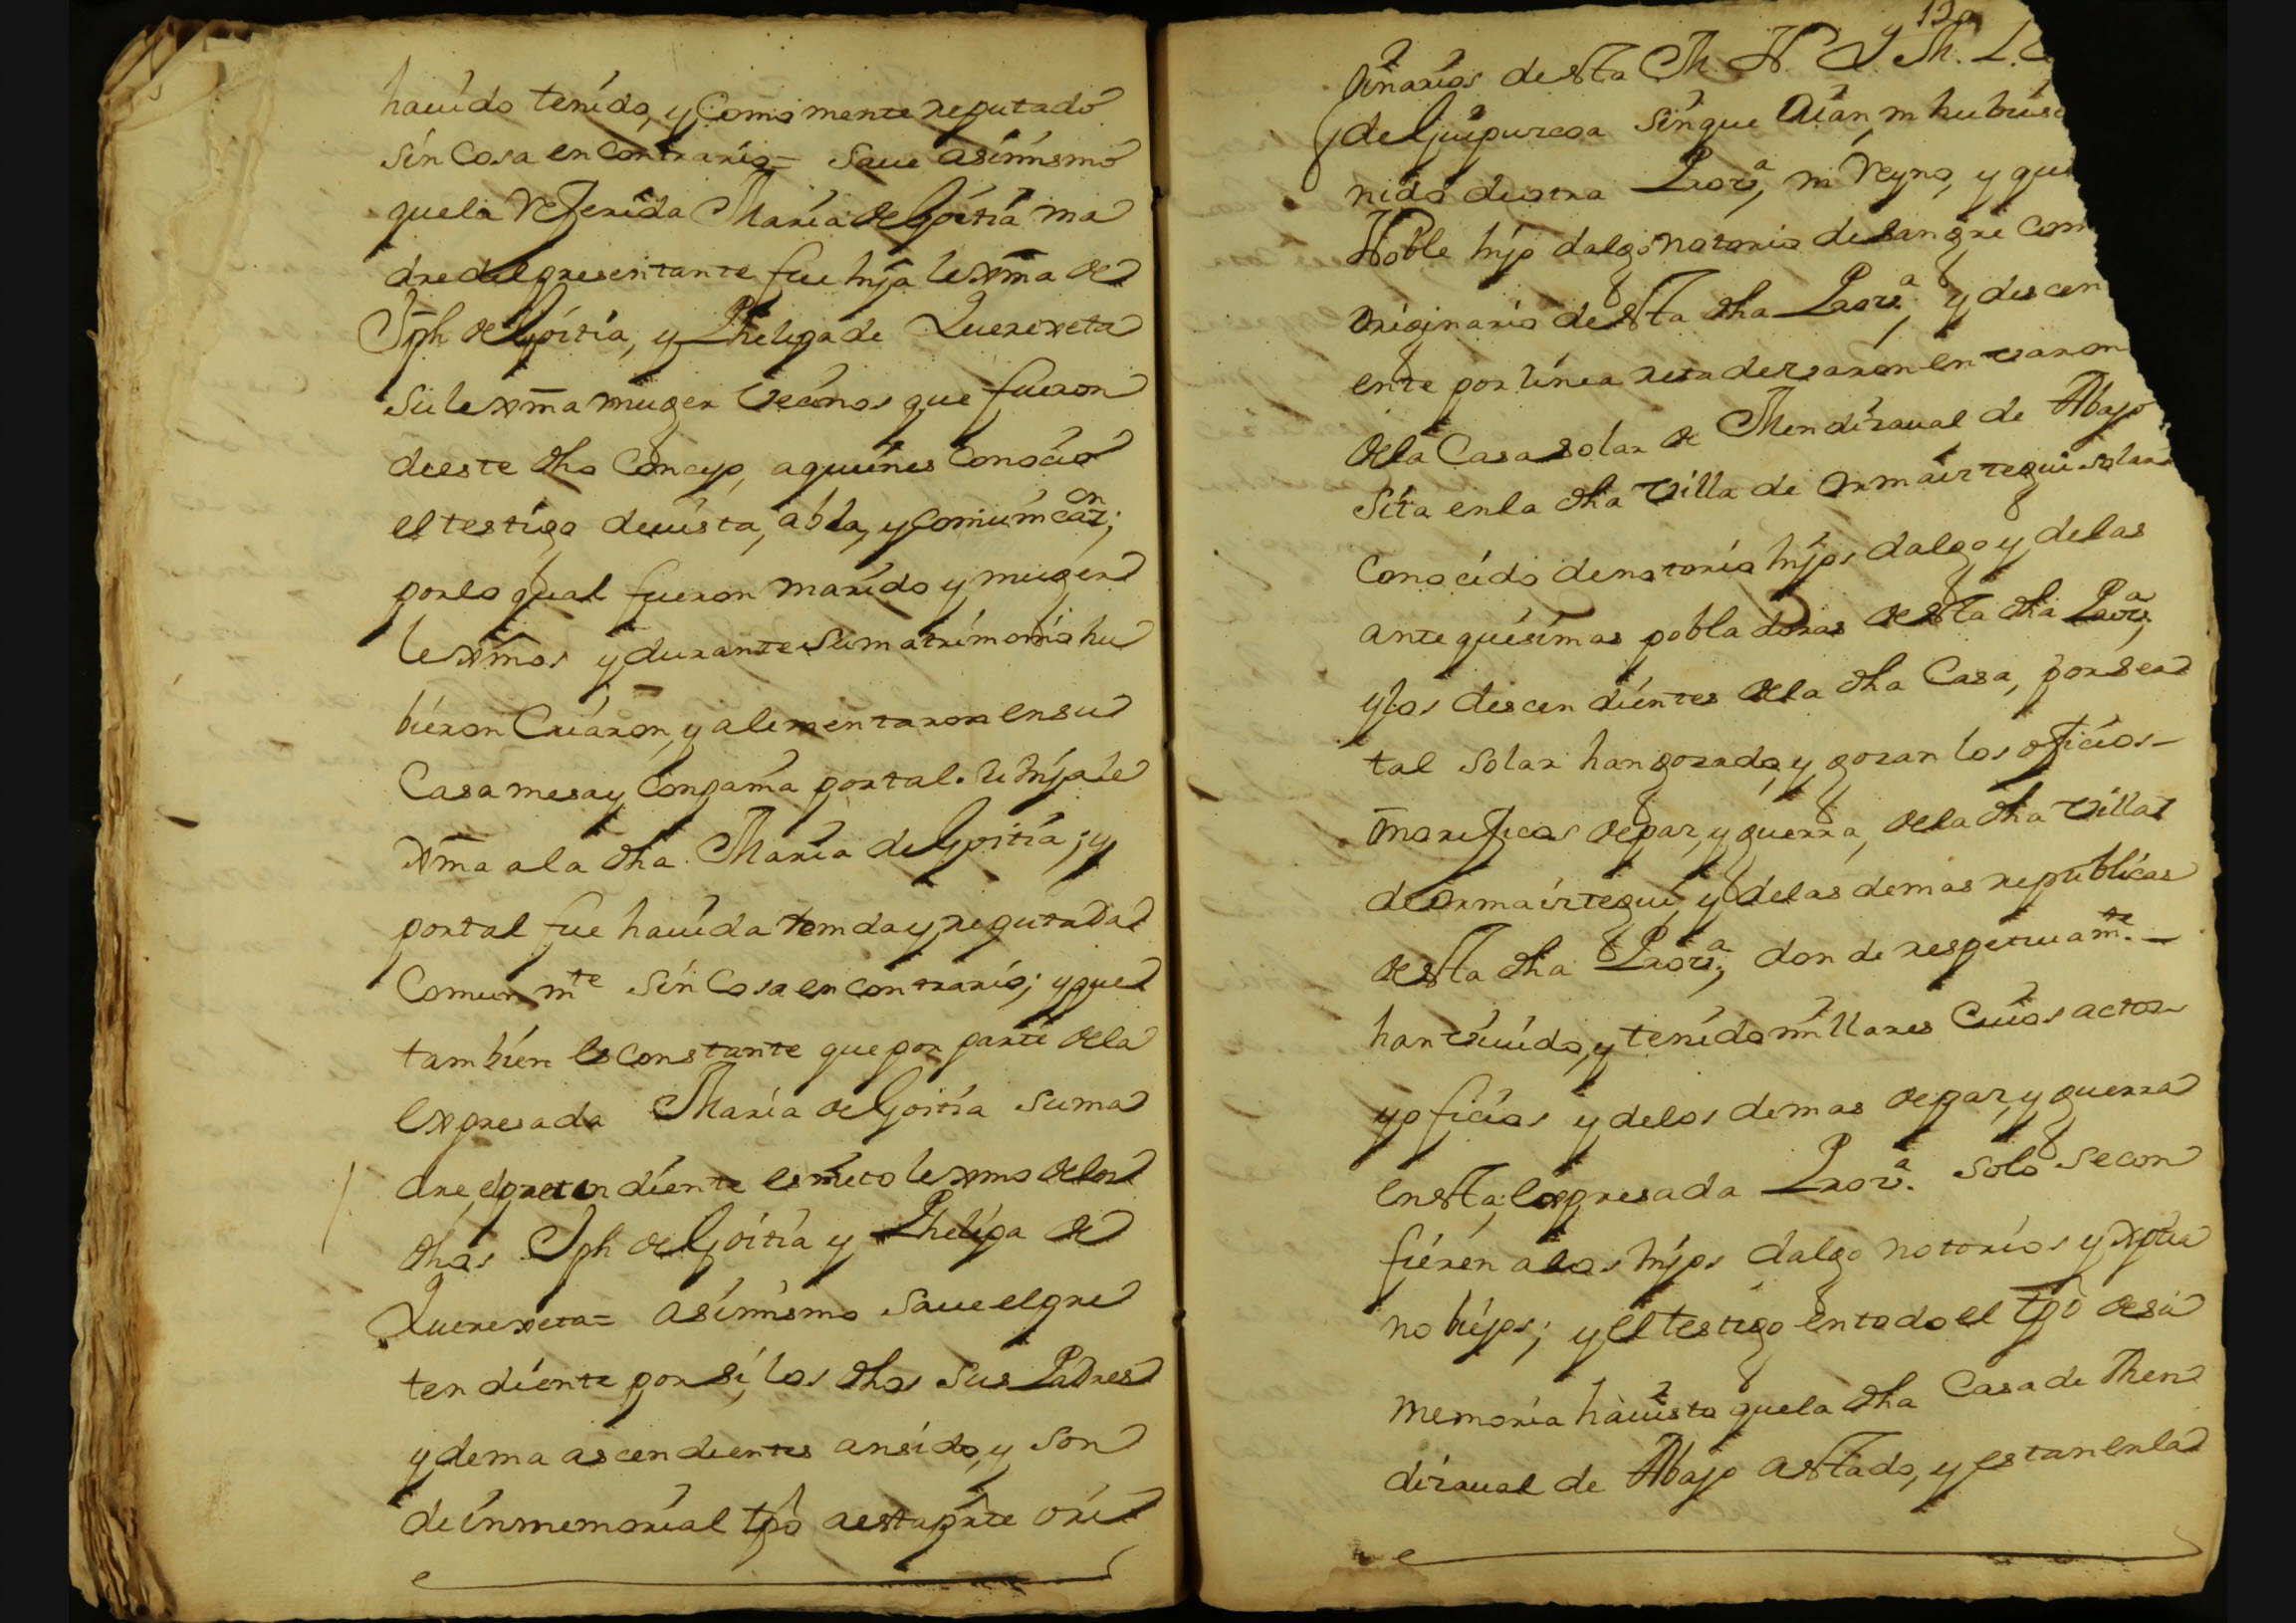 hauido tenido, y Comomente reputado
sin Cosa en Contrario = Saue asimismo
que la Referida Maria de Goitia ma
dre del presentante fue hija lexma de
Jph de Goitia, y Phelipa de Querexeta
su lexma muger Vecinos que fueron
de este dho Concejo, a quienes Conocio
el testigo de uista, abla, y Comunicaon;
por lo qual fueron marido y muger
lexmos y durante su matrimonio hu
bieron Criaron, y alimentaron en su
Casa mesa y Compania por tal su hija le
xma a la dha Maria de Goitia; y
por tal fue hauida tenida y reputada
Comunmte sin Cosa en contrario; y que
tambien es constante que por parte de la
Expresada Maria de Goitia su ma
dre, el pretendiente es nieto lexmo de los
dhos Jph de Goitia y Phelipa de
Querexeta = asimismo saue el pre
tendiente por si, los dhos sus Padres
y dema ascendientes an sido, y son
de inmemorial tpo a esta parte ori
12
ginarios de esta M. N. Y M. L.
de Guipuzcoa sin que aian, ni hubies
nido de otra Prova, ni Reyno, y que
Noble hijo dalgo notorio de sangre com
originario de esta dha Prova. y descen
ente por linea reta de varon en varon
de la Casa solar de Mendizaual de Abajo
sita en la dha villa de Ormaiztegui solar
Conocido de notorio hijos dalgo y de las
antequisimas pobladoras de esta dha Prova,
y los descendientes de la dha Casa, por ser
tal solar han gozado, y gozan los oficios
onorificos de paz, y guerra, de la dha villa
de Ormaiztegui, y de las demas republicas
de esta dha Prova, donde respetiuamte.
han viuido, y tenido millares Cuios actos
y oficios y de los demas de paz, y guerra
en esta expresada Prova. solo se con
fieren a los hijos dalgo notorios y xptia
no biejos; y el testigo en todo el tpo de su
memoria ha uisto que la dha Casa de Men
dizaual de Abajo a estado, y estan en la